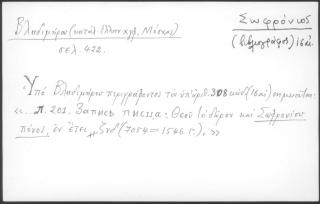 Βλαδιμήρου (κατάλ. Ἑλλην. χφ., Μόσχας)
σελ. 422.
Σωφρόνιος
(βιβλιογράφος) 16 αἰ.
Ὑπὸ Βλαδιμήρου περιγράφοντος τὸν ὑπ' ἀριθ. 308 κώδ. (16 αἰ.) σημειοῦται:
«. Л. 201. Запись писца: Θεοῦ τὸ δῶρον καὶ Σωφρονίου
πόνος, ἐν ἔτει ͵ζνδ' (7054 = 1546 г.). »